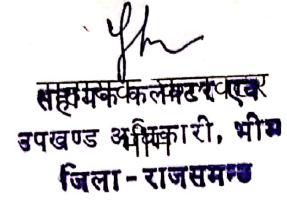 सहायक कलेक्टर एवं
उपखण्ड अधिकारी, भीम
जिला - राजसमन्द